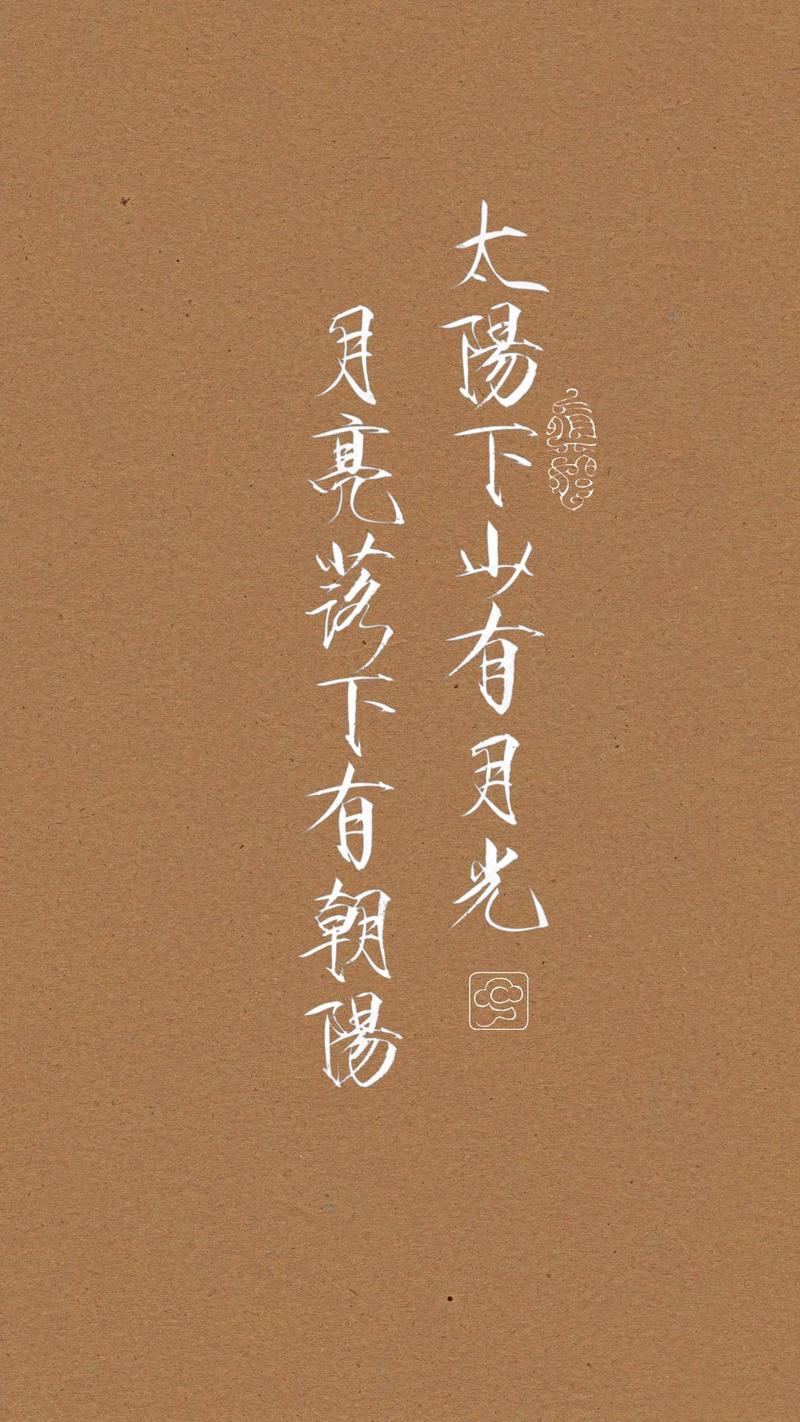 太陽下山有月光
月亮落下有朝陽